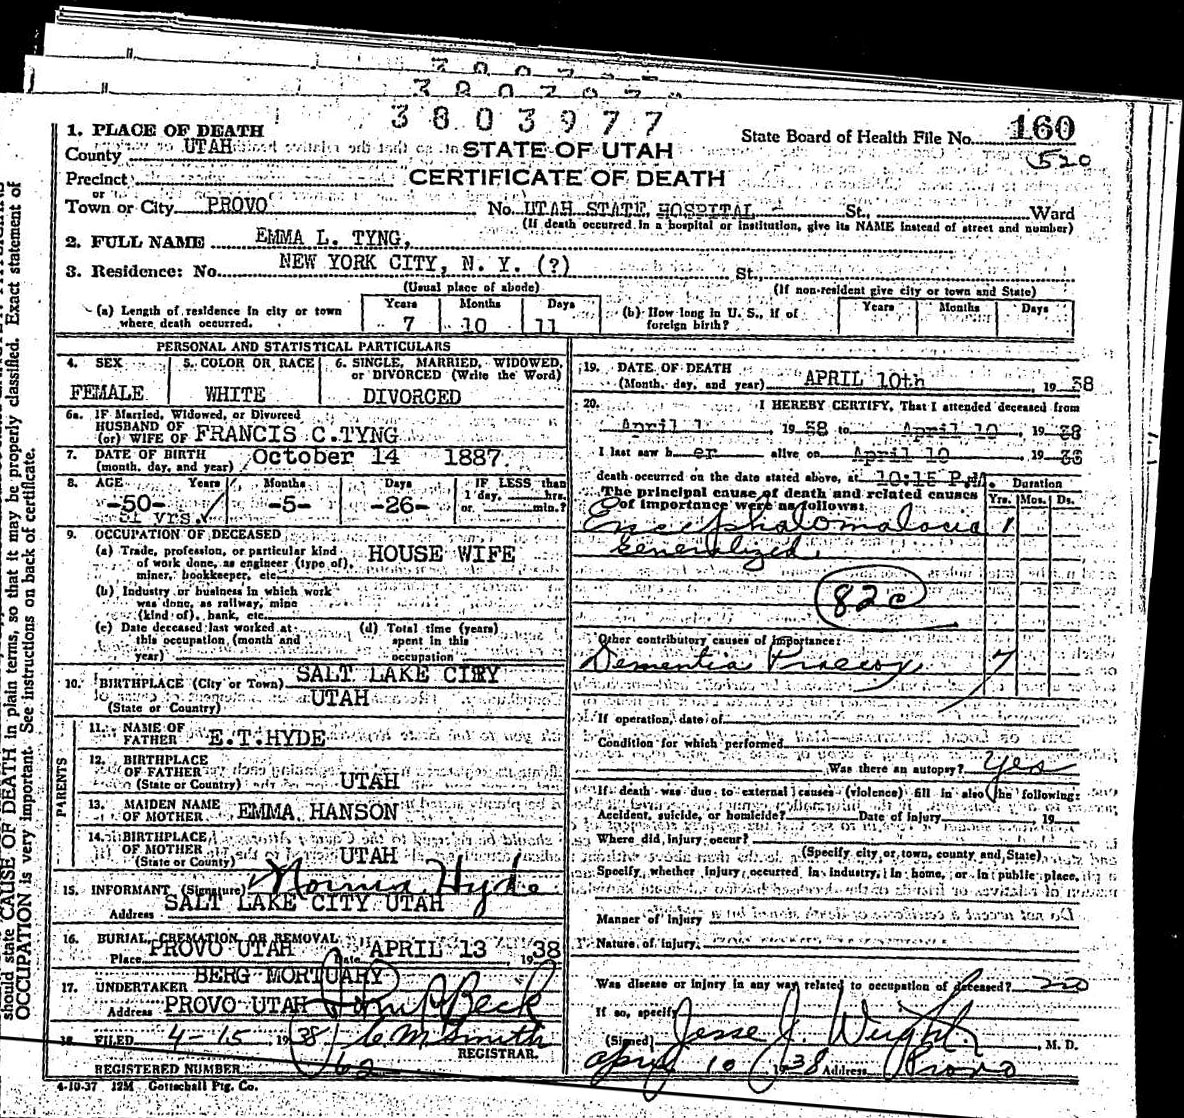 3803977
State Board of Health File No. 160
520
1. PLACE OF DEATH
County UTAH
STATE OF UTAH
CERTIFICATE OF DEATH
Precinct
or
Town or City PROVO No. UTAH STATE HOSPITAL St., Ward
(If death occurred in a hospital or institution, give its NAME instead of street and number)
2. FULL NAME EMMA L. TYNG,
3. Residence: No. NEW YORK CITY, N. Y. (?) St.
(Usual place of abode) (If non-resident give city or town and State)
(a) Length of residence in city or town where death occurred. Years 7 Months 10 Days 11
(b) How long in U. S., if of foreign birth? Years Months Days
PERSONAL AND STATISTICAL PARTICULARS
4. SEX FEMALE
5. COLOR OR RACE WHITE
6. SINGLE, MARRIED, WIDOWED, or DIVORCED (Write the Word) DIVORCED
6a. IF Married, Widowed, or Divorced
HUSBAND OF
(or) WIFE OF FRANCIS C.TYNG
7. DATE OF BIRTH
(month, day, and year) October 14 1887
8. AGE Years Months Days IF LESS than
-50- -5- -26- 1 day, hrs.
51 yrs. or min.?
9. OCCUPATION OF DECEASED
(a) Trade, profession, or particular kind HOUSE WIFE
of work done, as engineer (type of),
miner, bookkeeper, etc.
(b) Industry or business in which work
was done, as railway, mine
(kind of), bank, etc.
(c) Date deceased last worked at
this occupation (month and
year)
(d) Total time (years)
spent in this
occupation
10. BIRTHPLACE (City or Town) SALT LAKE CITY
(State or Country) UTAH
PARENTS
11. NAME OF
FATHER E.T.HYDE
12. BIRTHPLACE
OF FATHER
(State or Country) UTAH
13. MAIDEN NAME
OF MOTHER EMMA HANSON
14. BIRTHPLACE
OF MOTHER
(State or County) UTAH
15. INFORMANT (Signature) Norma Hyde
Address SALT LAKE CITY UTAH
16. BURIAL, CREMATION, OR REMOVAL
Place PROVO UTAH Date APRIL 13 1938
17. UNDERTAKER BERG MORTUARY
Address PROVO UTAH
Beck
18. FILED 4-15, 1938 C M Smith
REGISTRAR.
REGISTERED NUMBER 62
4-10-37 12M Gottschall Ptg. Co.
19. DATE OF DEATH
(Month, day, and year) APRIL 10th 1938
20. I HEREBY CERTIFY, That I attended deceased from
April 1, 1938 to April 10, 1938
I last saw her alive on April 10 1938
death occurred on the date stated above, at 10:15 P.M.
The principal cause of death and related causes
of importance were as follows:
Duration
Yrs. Mos. Ds.
Encephalomalacia 1
generalized.
82c
Other contributory causes of importance:
Dementia Praecox 7
If operation, date of
Condition for which performed
Was there an autopsy? Yes
If death was due to external causes (violence) fill in also the following:
Accident, suicide, or homicide? Date of injury 19
Where did injury occur?
(Specify city or town, county and State)
Specify whether injury occurred in industry, in home, or in public place,
Manner of injury
Nature of injury
Was disease or injury in any way related to occupation of deceased? no
If so, specify
(Signed) Jesse J. Weight, M. D.
April 10 1938 Address Provo
should state CAUSE OF DEATH in plain terms, so that it may be properly classified. Exact statement of
OCCUPATION is very important. See instructions on back of certificate.